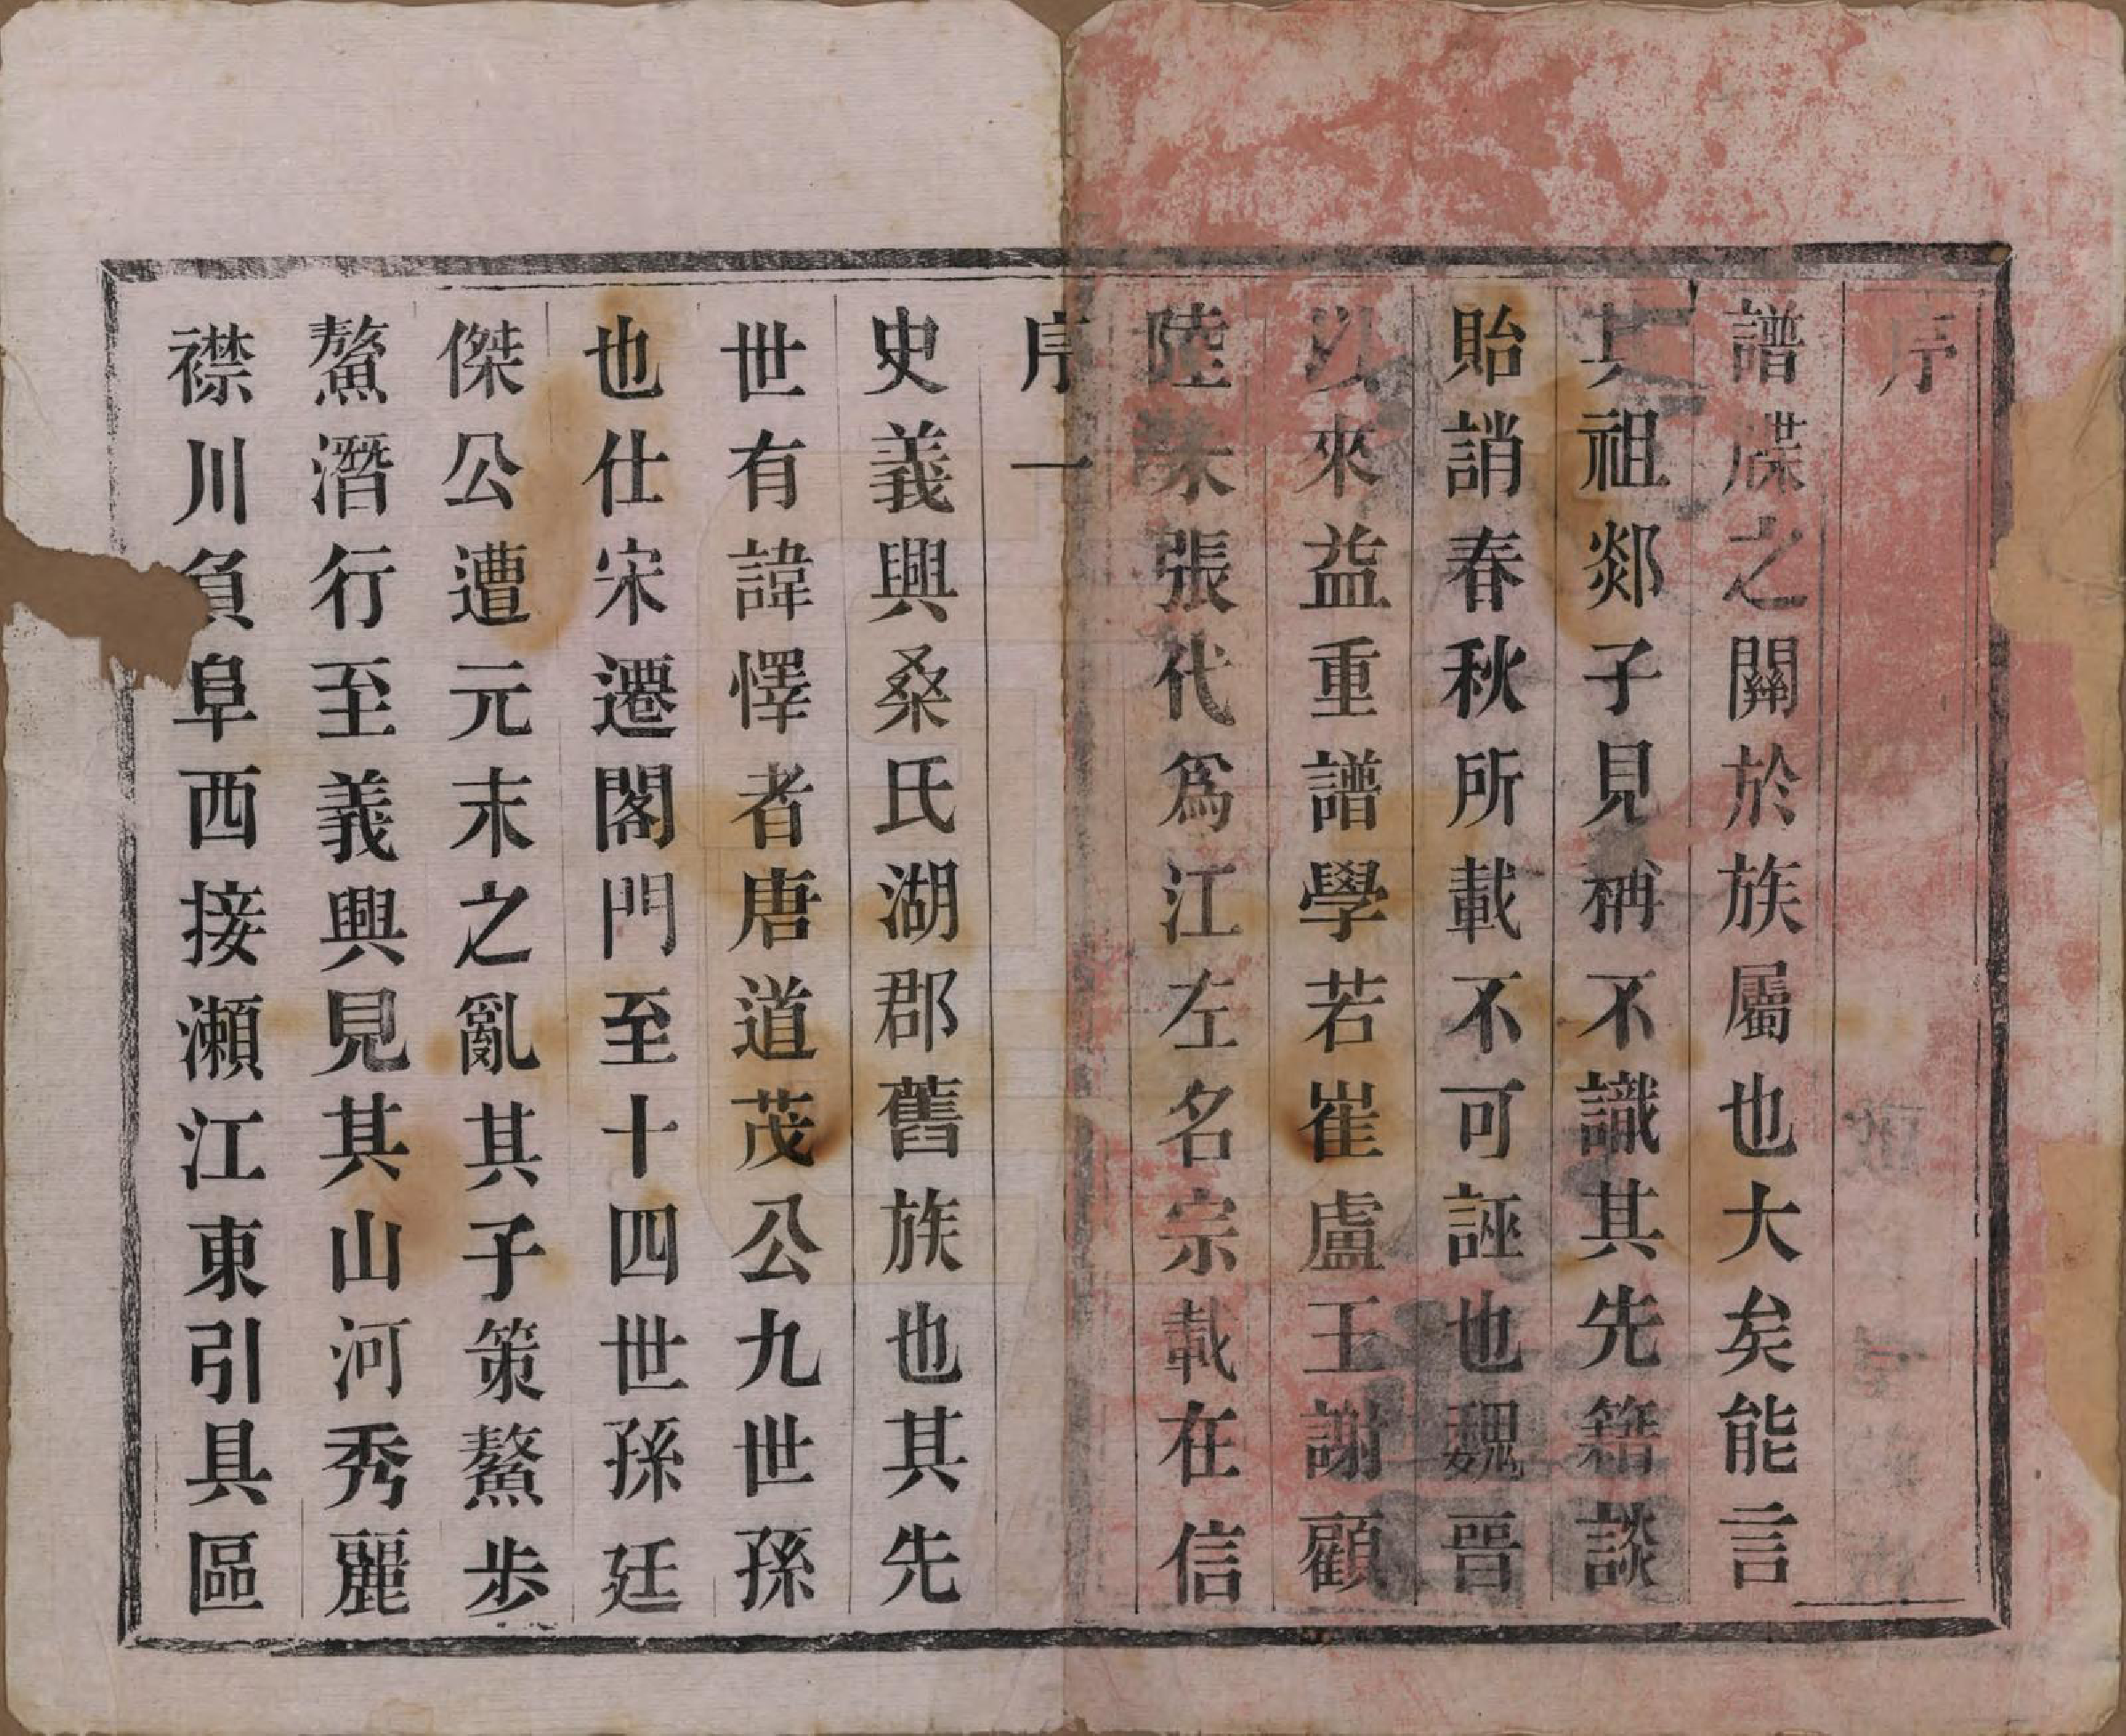 序
譜牒之關於族屬也大矣能言
其祖郯子見稱不識其先籍談
貽誚春秋所載不可誣也魏晉
以來益重譜學若崔盧王謝顧
陸朱張代爲江左名宗載在信
序一
史義興桑氏湖郡舊族也其先
世有諱懌者唐道茂公九世孫
也仕宋遷閣門至十四世孫廷
傑公遭元末之亂其子策鰲步
鰲潛行至義興見其山河秀麗
襟川負阜西接瀨江東引具區